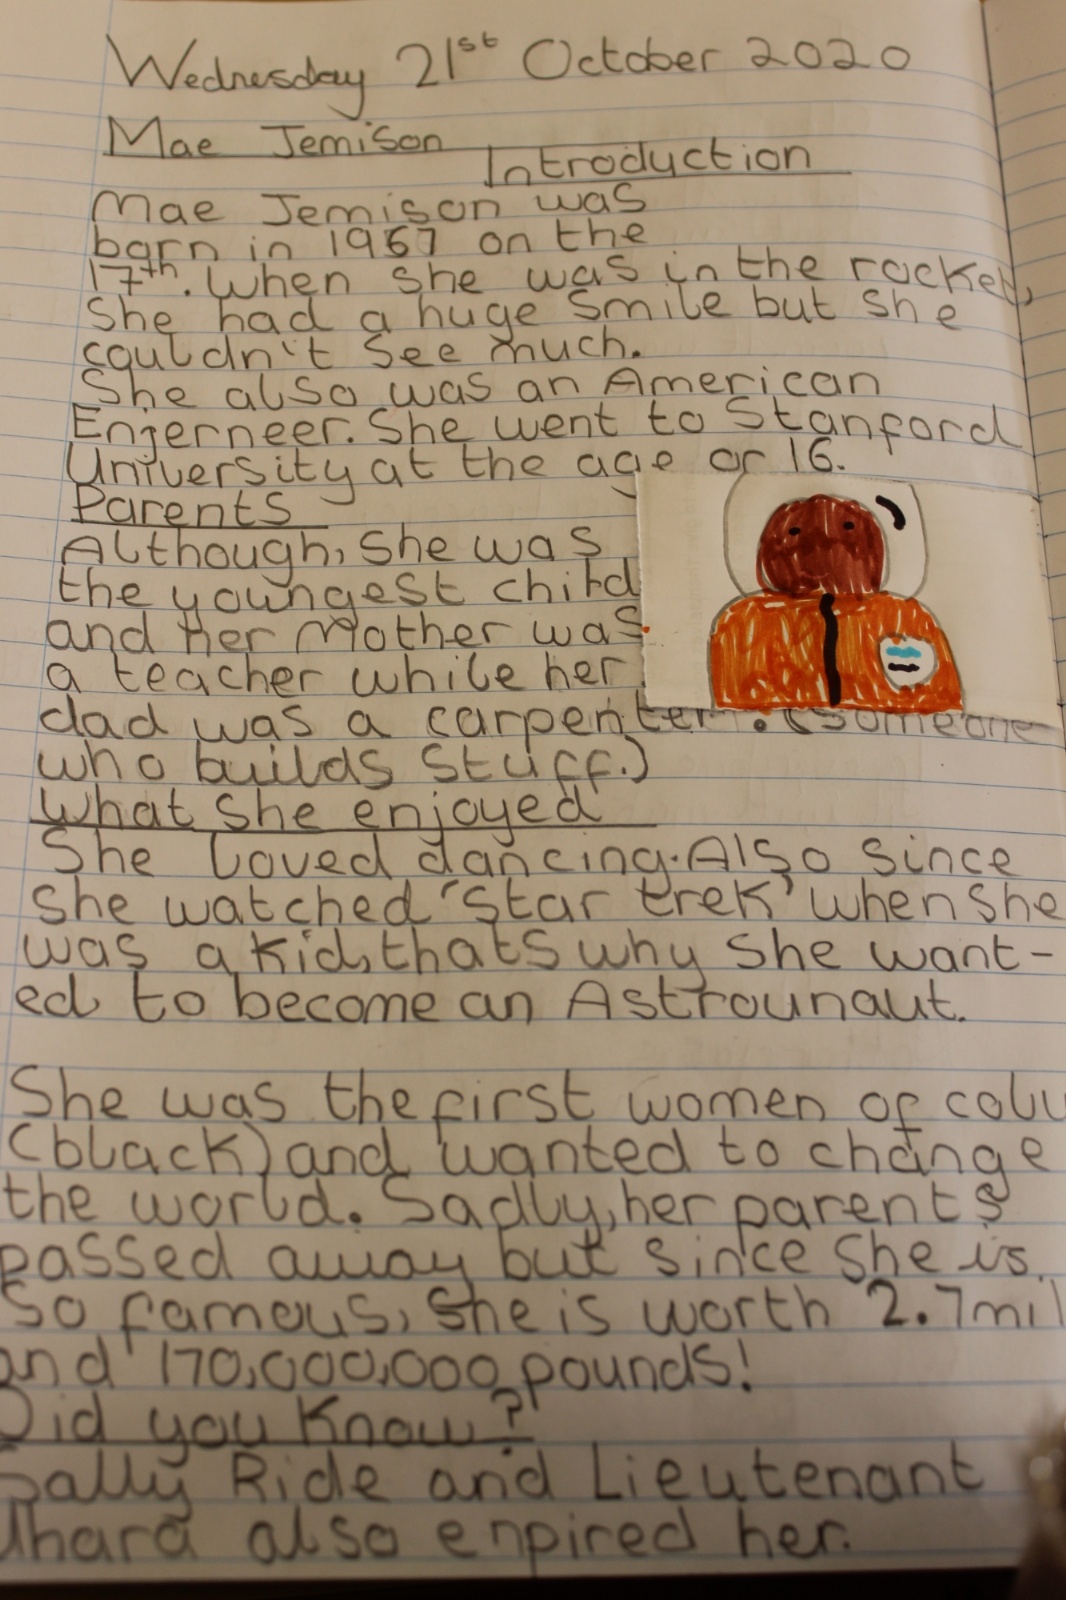 Wednesday 21st October 2020
Mae Jemison
Introduction
Mae Jemison was
born in 1967 on the
17th. When she was in the rocket,
She had a huge smile but she
couldn't see much.
She also was an American
Enjerneer. She went to Stanford
University at the age or 16.
Parents
Although, she was
the youngest child
and her Mother was
a teacher while her
dad was a carpenter. (someone
who builds stuff.)
What she enjoyed
She loved dancing. Also since
she watched 'Star trek' when she
was a kid, thats why she want-
ed to become an Astrounaut.
She was the first women of colu
(black) and wanted to change
the world. Sadly, her parents
passed away but since she is
so famous, she is worth 2.7mil
and 170,000,000 pounds!
Did you know?
Sally Ride and Lieutenant
Uhara also enpired her.